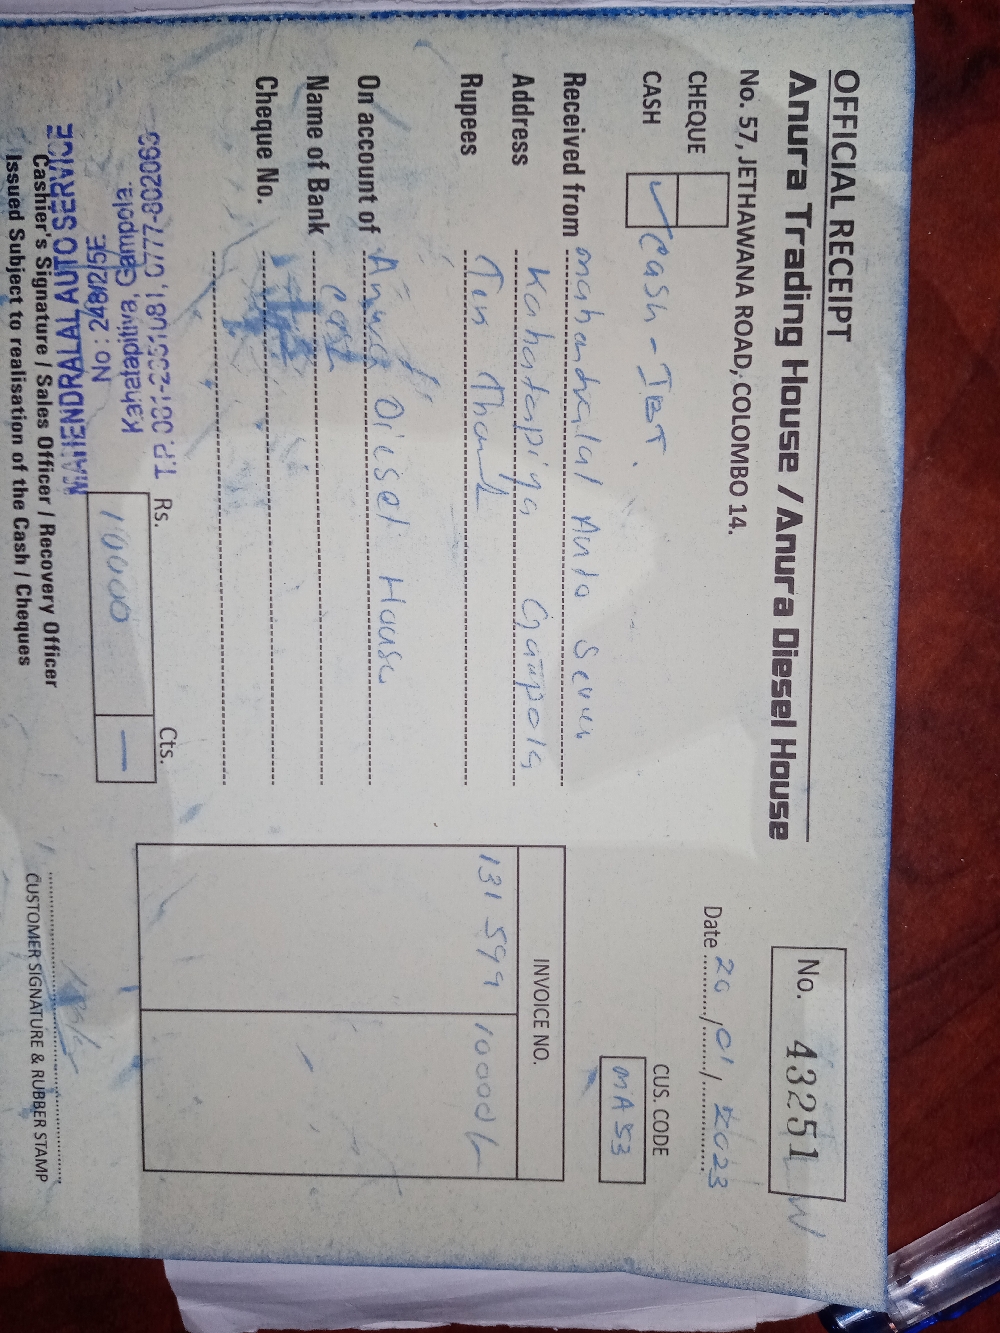 OFFICIAL RECEIPT
Anura Trading House / Anura Diesel House
No. 57, JETHAWANA ROAD, COLOMBO 14.
No. 43251
Date 20/01/2023
CHEQUE
CASH ✓ Cash - IBT.
CUS. CODE
MA53
Received from mahandralal Auto Server
Address Kahatapiya Gampola
Rupees Ten Thank
On account of Anura Diesel House
Name of Bank cash
Cheque No.
INVOICE NO.
131599 10000/-
Rs. Cts.
10000 —
T.P. 0777-802069
Kahatapitiya, Gampola.
No : 248/2/5E
MAHENDRALAL AUTO SERVICE
Cashier's Signature / Sales Officer / Recovery Officer
Issued Subject to realisation of the Cash / Cheques
CUSTOMER SIGNATURE & RUBBER STAMP